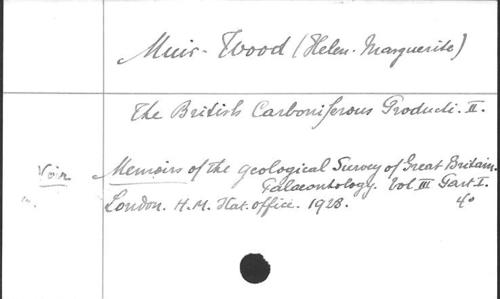 Muir-Wood (Helen-Marguerite)
The British Carboniferous Producti. II.
Voir Memoirs of the geological Survey of Great Britain.
Palaeontology. Vol III Part. I.
London. H.M. Stat. office. 1928. 4°